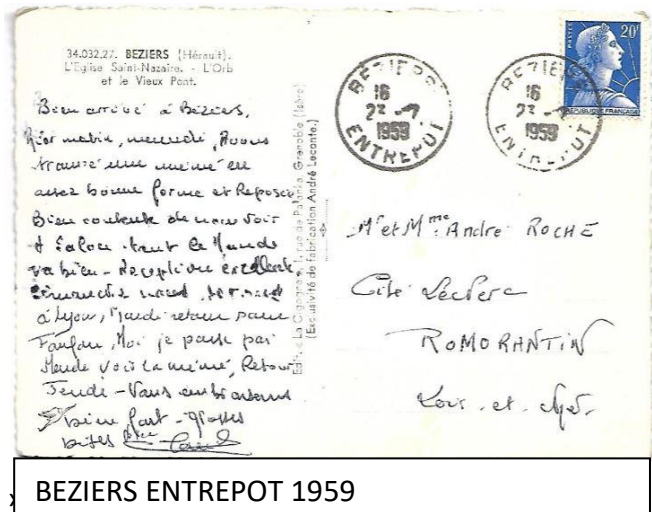 34.032.27. BEZIERS (Hérault).
L'Eglise Saint-Nazaire. - L'Orb
et le Vieux Pont.
Bien arrivé à Béziers,
Hier matin, mercredi, Avons
trouvé une mémé en
assez bonne forme et Reposée
Bien contente de nous voir
A Salon tout le Monde
va bien - Réception excellente
à Lyon, Mardi retour sans
Fanfan, Moi je passe par
Mende voir la mémé, Retour
Jeudi - Vous embrassons
bien fort - Grosses
bises
Editions La Cigogne, 1, rue de Grenoble (Isère)
(Exclusivité de fabrication André Leconte.)
BEZIERS
16
23 -7
1959
ENTREPOT
BEZIERS
16
23 -7
1959
ENTREPOT
POSTES
20F
REPUBLIQUE FRANÇAISE
Mr et Mme André ROCHE
Cité Leclerc
ROMORANTIN
Loir. et. Cher.
BEZIERS ENTREPOT 1959